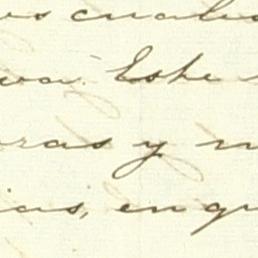 os cuales
va. Este
oras y m
ias, en qu